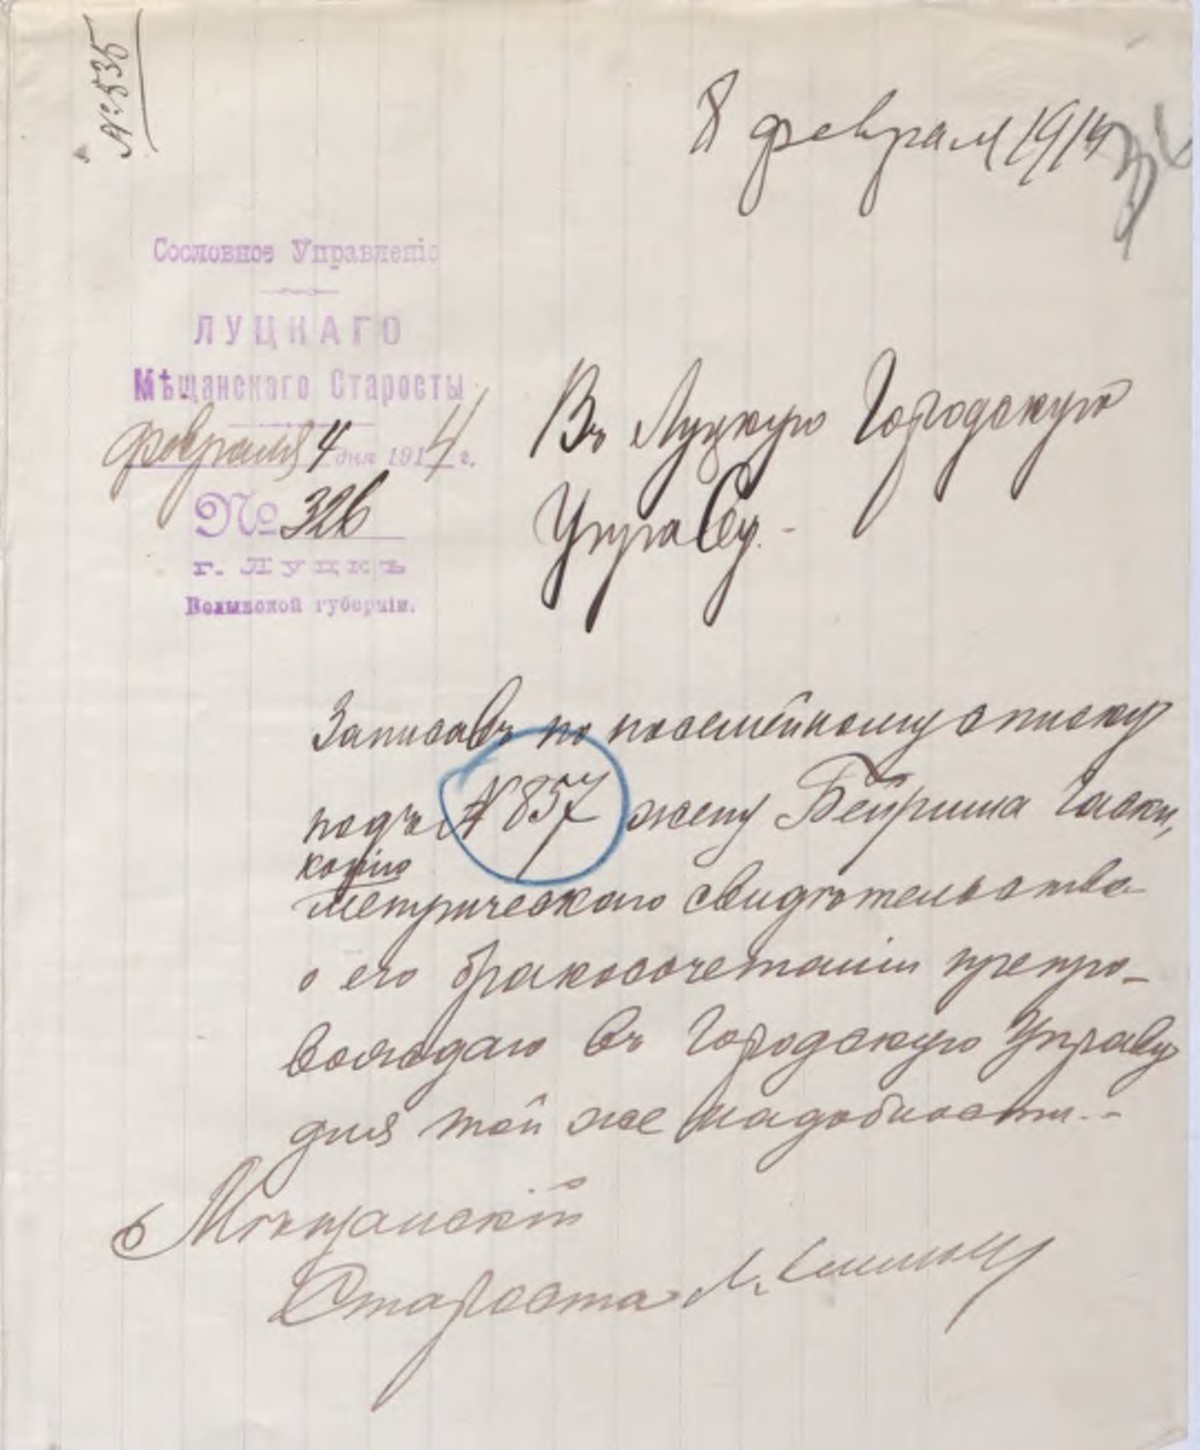 № 535
8 февраля 1914
Сословное Управленіе
ЛУЦКАГО
Мѣщанскаго Старосты
февраля 4 дня 1914 г.
№ 326
г. Луцкъ
Волынской губерніи.
Въ Луцкую Городскую
Управу.-
Записавъ по посемейному списку
подъ № 857 жену Бейриша Гиски,
копію
метрическаго свидѣтельства
о его бракосочетаніи препро-
вождаю въ Городскую Управу
для той же надобности.-
Мѣщанскій
Староста